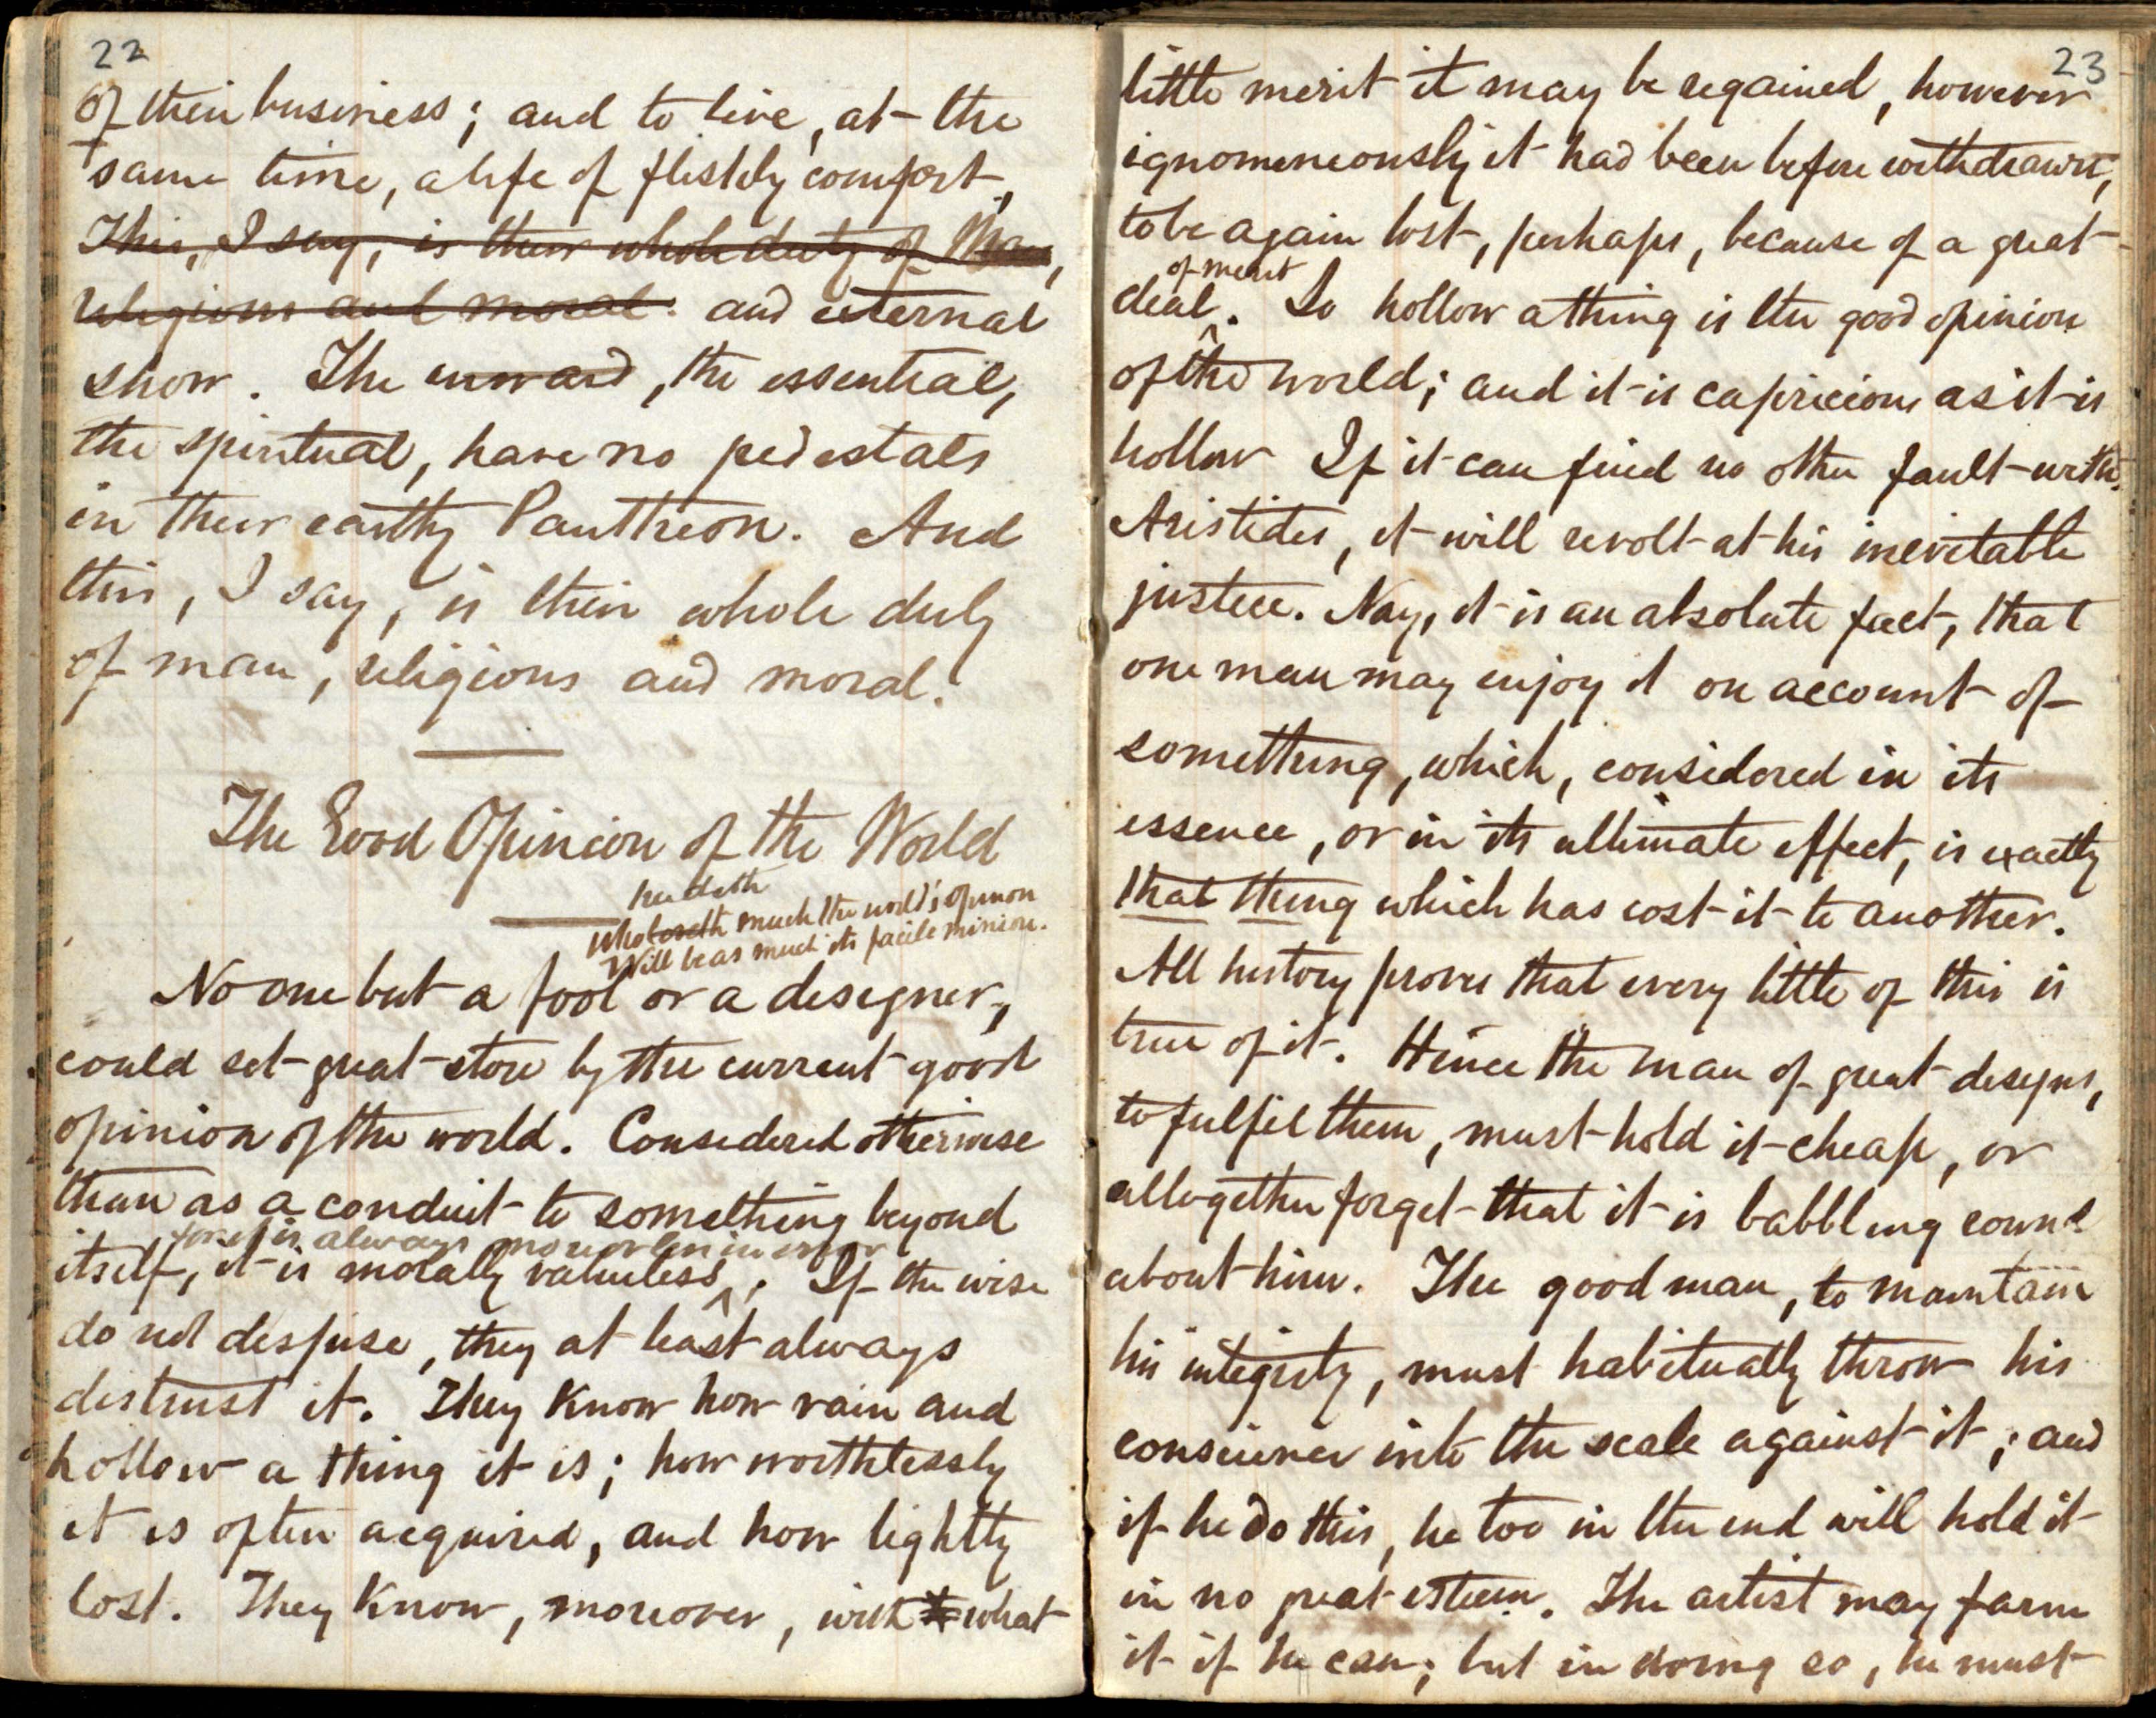 22
of their business; and to live, at the
same time, a life of fleshly comfort,
This, I say, is their whole duty of Man,
religious and moral. and external
show. The inward, the essential,
the spiritual, have no pedestals
in their earthy Pantheon. And
this, I say, is their whole duty
of man, religious and moral.
The Good Opinion of the World
heedeth
Who loseth much the world's opinion
Will be as much its facile minion.
No one but a fool or a designer,
could set great store by the current good
opinion of the world. Considered otherwise
than as a conduit to something beyond
for it is always more or less in error
itself, it is morally valueless; If the wise
do not despise, they at least always
distrust it. They know how vain and
hollow a thing it is; how worthlessly
it is often acquired, and how lightly
lost. They know, moreover, with what
23
little merit it may be regained, however
ignomineously it had been before withdrawn,
to be again lost, perhaps, because of a great
of merit
deal. So hollow a thing is the good opinion
of the world; and it is capricious as it is
hollow If it can find no other fault with
Aristides, it will revolt at his inevitable
justice. Nay, it is an absolute fact, that
one man may enjoy it on account of
something, which, considered in its
essence, or in its ultimate effect, is exactly
that thing which has cost it to another.
All history proves that every tittle of this is
true of it. Hence the man of great designs,
to fulfil them, must hold it cheap, or
altogether forget that it is babbling
about him. The good man, to maintain
his integrity, must habitually throw his
conscience into the scale against it; and
if he do this, he too in the end will hold it
in no great esteem. The artist may farm
it if he can; but in doing so, he must